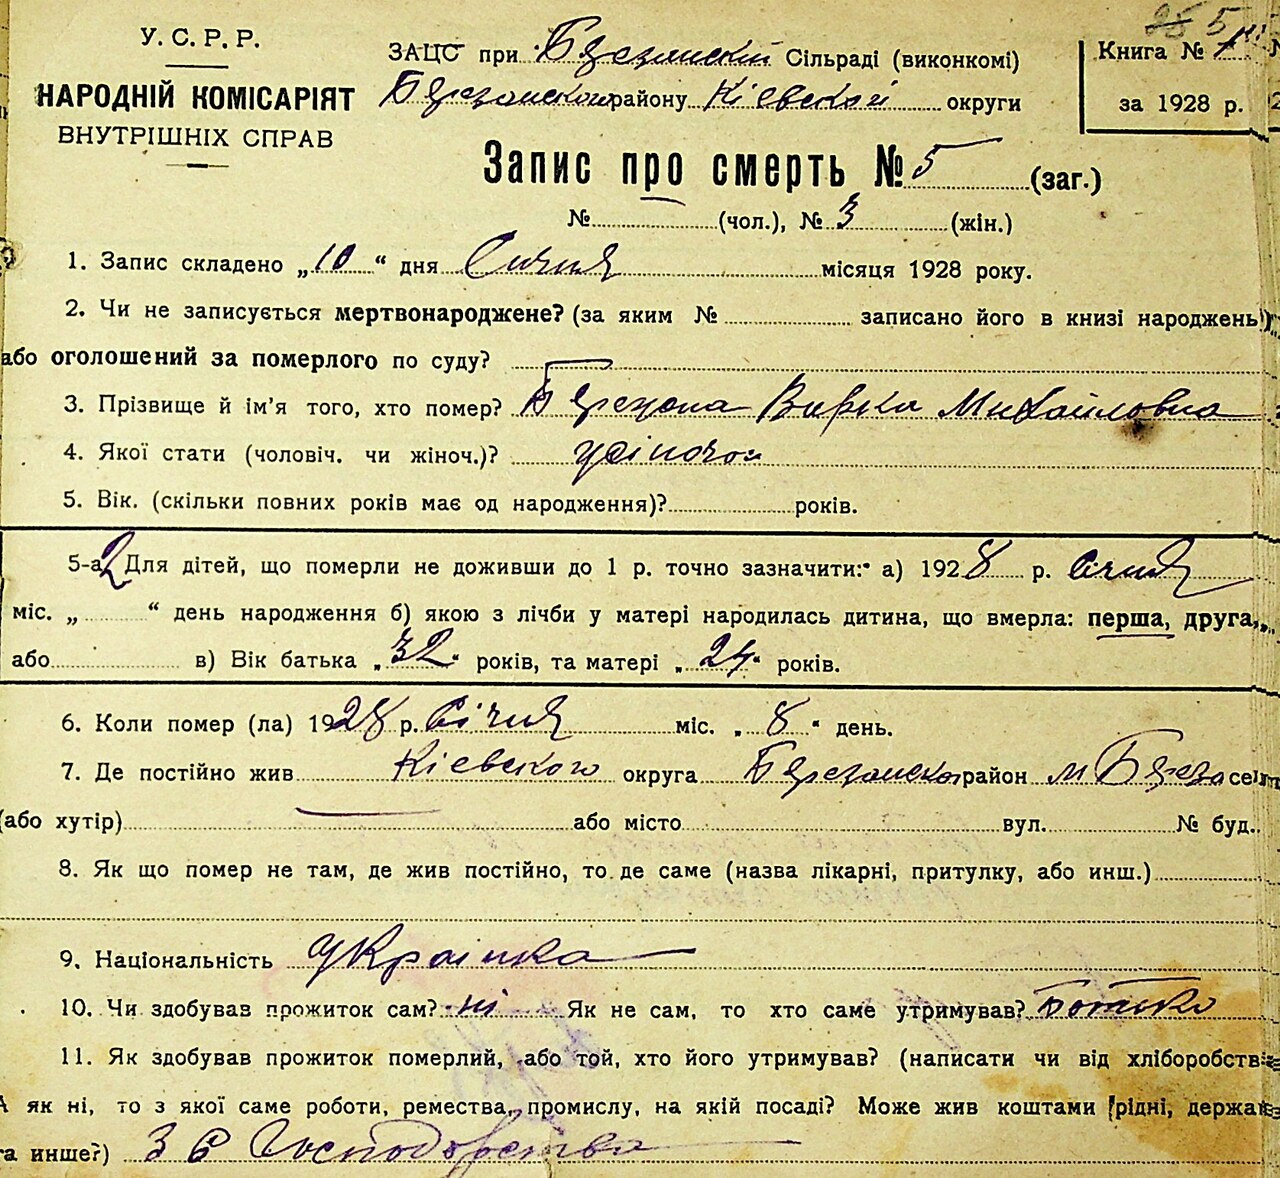 У. С. Р. Р.
НАРОДНІЙ КОМІСАРІЯТ
ВНУТРІШНІХ СПРАВ
ЗАЦС при Березанскій Сільраді (виконкомі)
Березанского району Кіевской округи
Книга №
за 1928 р.
Запис про смерть № 5 (заг.)
№ (чол.), № 3 (жін.)
1. Запис складено „10“ дня Січня місяця 1928 року.
2. Чи не записується мертвонароджене? (за яким № записано його в книзі народжень)
або оголошений за померлого по суду?
3. Прізвище й ім'я того, хто помер? Вирка Михайловна
4. Якої стати (чоловіч. чи жіноч.)? жіночої
5. Вік. (скільки повних років має од народження)? років.
5-а Для дітей, що померли не доживши до 1 р. точно зазначити: а) 1928 р. Січня
міс. „ “ день народження б) якою з лічби у матері народилась дитина, що вмерла: перша, друга,
або в) Вік батька „32“ років, та матері „24“ років.
6. Коли помер (ла) 1928 р. Січня міс. „8“ день.
7. Де постійно жив Кіевского округа Березанского район м Береза
(або хутір) або місто вул. № буд.
8. Як що помер не там, де жив постійно, то де саме (назва лікарні, притулку, або инш.)
9. Національність Украінка
10. Чи здобував прожиток сам? ні Як не сам, то хто саме утримував? Батько
11. Як здобував прожиток померлий, або той, хто його утримував? (написати чи від хліборобств
А як ні, то з якої саме роботи, ремества, промислу, на якій посаді? Може жив коштами рідні, держав
та инше?) З С Господорства